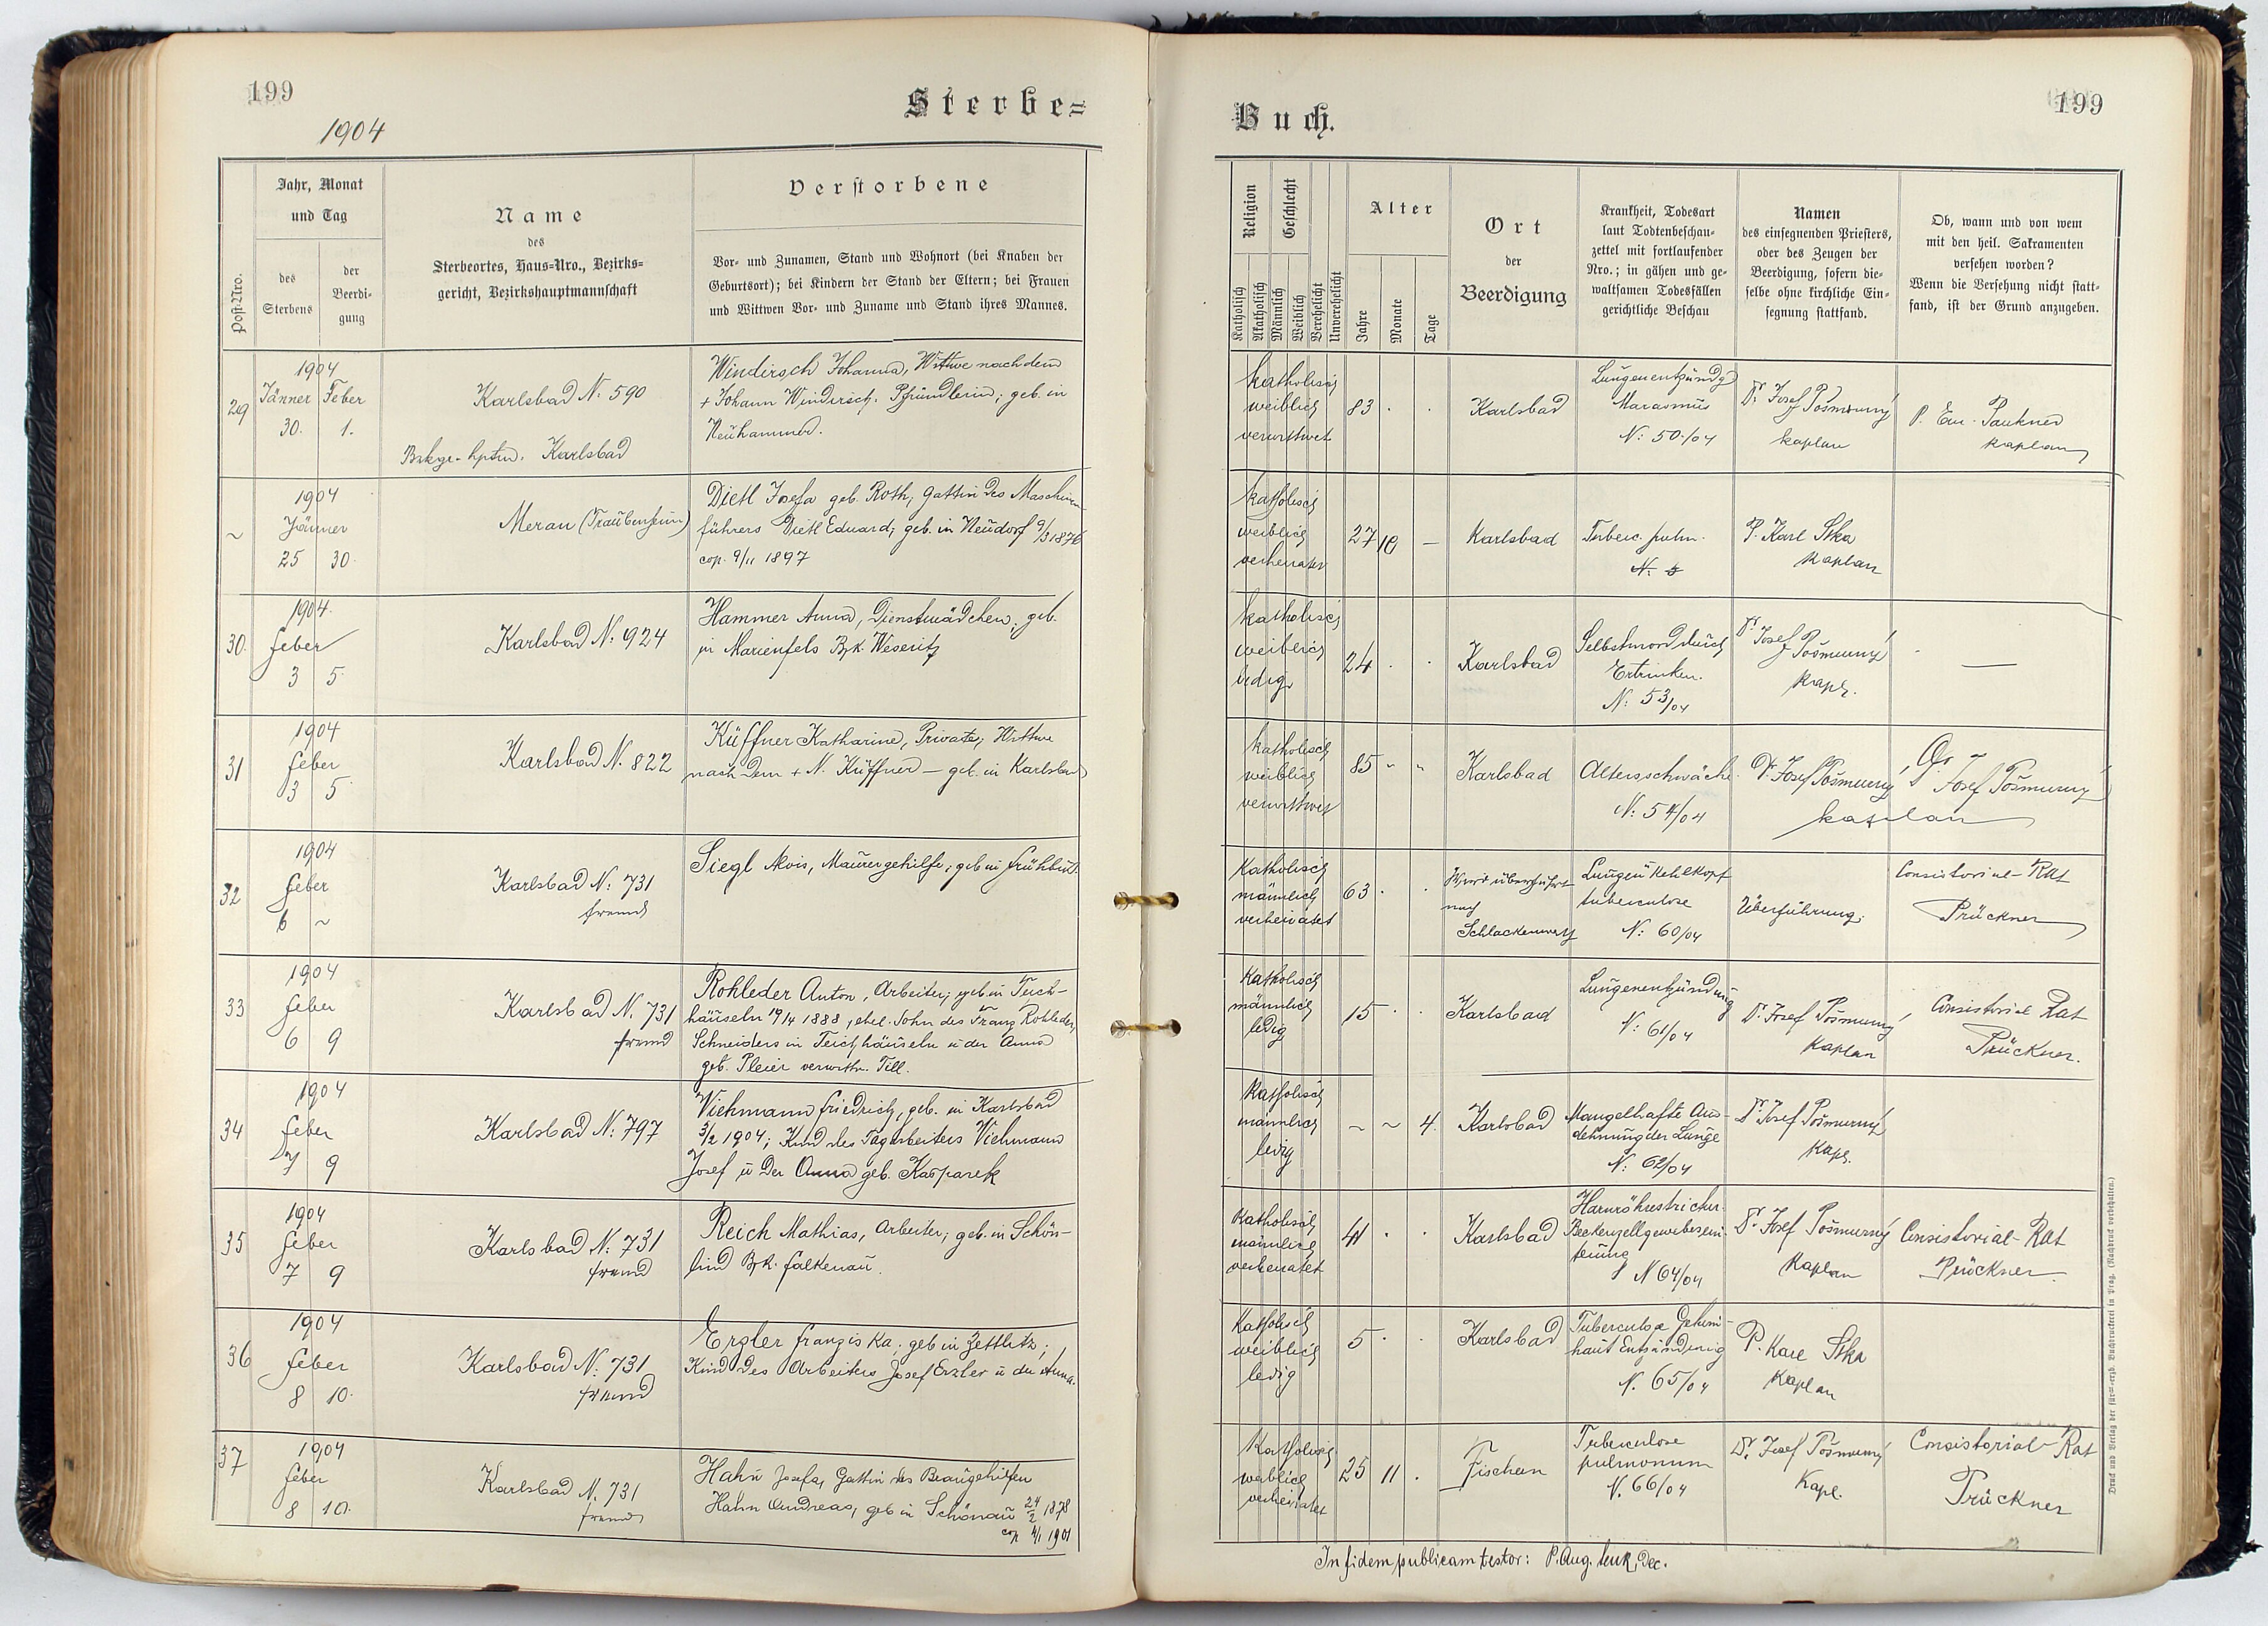 199
1904
Sterbe=
Post-Nro.
Jahr, Monat
und Tag
des
Sterbens
der
Beerdi-
gung
Name
des
Sterbeortes, Haus-Nro., Bezirks-
gericht, Bezirkshauptmannschaft
Verstorbene
Vor- und Zunamen, Stand und Wohnort (bei Knaben der
Geburtsort); bei Kindern der Stand der Eltern; bei Frauen
und Wittwen Vor- und Zuname und Stand ihres Mannes.
29
1904
Jänner Feber
30. 1.
Karlsbad N: 590
Karlsbad
Windirsch Johanna, Wittwe nach dem
+ Johann Windirsch. Pfründlerin; geb. in
Neuhammer.
~
1904
Jänner
25 30.
Meran (Traubenheim)
Dietl Josefa geb. Roth, Gattin des Maschin-
führers Dietl Eduard; geb. in Neudorf 9/3 1876
cop. 9/11 1897
30.
1904.
Feber
3 5.
Karlsbad N: 924
Hammer Anna, Dienstmädchen, geb.
in Marienfels Bzk. Weseritz
31
1904
Feber
3 5
Karlsbad N. 822
Küffner Katharine, Private, Wittwe
nach dem + N. Küffner – geb. in Karlsbad
32
1904
Feber
6 ~
Karlsbad N: 731
fremd
Siegl Alois, Maurergehilfe; geb in Frühbuß.
33
1904
Feber
6 9
Karlsbad N. 731
fremd
Rohleder Anton, Arbeiter; geb. in Teich-
häuseln 19/4 1888, ehel. Sohn des Franz Rohleder,
Schneiders in Teichhäuseln u der Anna
geb. Pleier verwitw. Till.
34
1904
Feber
7 9
Karlsbad N: 797
Viehmann Friedrich, geb. in Karlsbad
3/2 1904; Kind des Tagarbeiters Viehmann
Josef u der Anna geb. Kasparek
35
1904
Feber
7 9
Karlsbad N: 731
fremd
Reich Mathias, Arbeiter; geb. in Schön-
lind Bzk. Falkenau.
36
1904
Feber
8 10.
Karlsbad N: 731
fremd
Erzler Franziska; geb in Zettlitz;
Kind des Arbeiters Josef Erzler u der Anna.
37
1904
Feber
8 10.
Karlsbad N. 731
fremd
Hahn Josefa, Gattin des Braugehilfen
Hahn Andreas, geb in Schönau 24/2 1878
cop 4/1 1901
Buch.
199
Religion
Katholisch
Akatholisch
Geschlecht
Männlich
Weiblich
Verehelicht
Unverehelicht
Alter
Jahre
Monate
Tage
Ort
der
Beerdigung
Krankheit, Todesart
laut Todtenbeschau-
zettel mit fortlaufender
Nro.; in gähen und ge-
waltsamen Todesfällen
gerichtliche Beschau
Namen
des einsegnenden Priesters,
oder des Zeugen der
Beerdigung, sofern die-
selbe ohne kirchliche Ein-
segnung stattfand.
Ob, wann und von wem
mit den heil. Sakramenten
versehen worden?
Wenn die Versehung nicht statt-
fand, ist der Grund anzugeben.
katholisch
weiblich
verwittwet
83 . .
Karlsbad
Lungenentzündg
Marasmus
N: 50./04
Dr. Josef Pošmurný
kaplan
P. Em. Paukner
kaplan
katholisch
weiblich
verheiratet
27 10 –
Karlsbad
Tuberc. pulm.
P. Karl Ska
Kaplan
katholisch
weiblich
ledig
24 . .
Karlsbad
Selbstmord durch
Ertrinken.
N: 53/04
Dr. Josef Pošmurný
Kapl.
—
katholisch
weiblich
verwittwet
85 " "
Karlsbad
Altersschwäche
N: 54/04
Dr. Josef Pošmurný
Josef Pošmurný
kaplan
Katholisch
männlich
verheiratet
63 . .
Wird überführt
nach
Schlackenwerth
Lungen u Kehlkopf
tuberculose
N: 60/04
Überführung.
Consistorial-Rat
Prückner
Katholisch
männlich
ledig
15 . .
Karlsbad
Lungenentzündung
N: 61/04
Dr. Josef Pošmurný
Kaplan
Consistorial Rat
Prückner.
Katholisch
männlich
ledig
~ ~ 4.
Karlsbad
Mangelhafte Aus-
dehnung der Lunge
N: 62/04
Dr. Josef Pošmurný
Kapl.
Katholisch
männlich
verheiratet
41 . .
Karlsbad
Harnröhrestrictur
Beckenzellgewebsverei-
terung
N 64/04
Dr. Josef Pošmurný
Kaplan
Consistorial-Rat
Prückner.
Katholisch
weiblich
ledig
5 . .
Karlsbad
Tuberculose Gehirn-
haut Entzündung
N. 65/04
P. Karl Ska
Kaplan
Katholisch
weiblich
verheiratet
25 11 .
Fischern
Tuberculose
pulmonum
N. 66/04
Dr. Josef Pošmurný
Kapl.
Consistorial-Rat
Prückner
In fidem publicam testor: P. Aug. Dec.
Druck und Verlag der fürst-erzb. Buchdruckerei in Prag. (Nachdruck vorbehalten.)